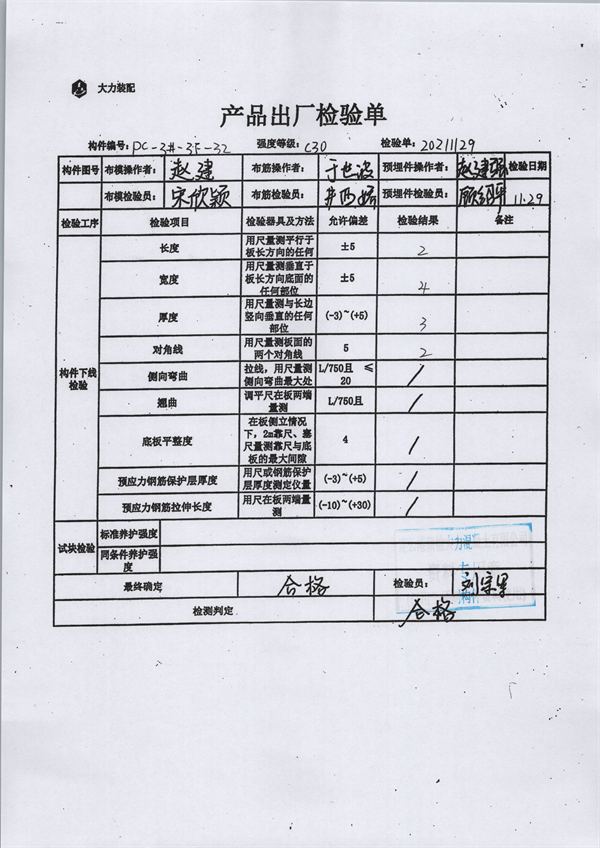 大力装配
产品出厂检验单
构件编号: PC-3#-3F-32 强度等级: C30 检验单: 20211129
构件图号 布模操作者: 赵建 布筋操作者: 于世波 预埋件操作者: 赵建强 检验日期
布模检验员: 宋欣颖 布筋检验员: 预埋件检验员: 11.29
检验工序 检验项目 检验器具及方法 允许偏差 检验结果 备注
构件下线检验
长度 用尺量测平行于板长方向的任何 ±5 2
宽度 用尺量测垂直于板长方向底面的任何部位 ±5 4
厚度 用尺量测与长边竖向垂直的任何部位 (-3)~(+5) 3
对角线 用尺量测板面的两个对角线 5 2
侧向弯曲 拉线,用尺量测侧向弯曲最大处 L/750且 ≤20 /
翘曲 调平尺在板两端量测 L/750且 /
底板平整度 在板侧立情况下,2m靠尺、塞尺量测靠尺与底板的最大间隙 4 /
预应力钢筋保护层厚度 用尺或钢筋保护层厚度测定仪量 (-3)~(+5) /
预应力钢筋拉伸长度 用尺在板两端量测 (-10)~(+30) /
试块检验 标准养护强度
同条件养护强度
最终确定 合格 检验员:
检测判定 合格